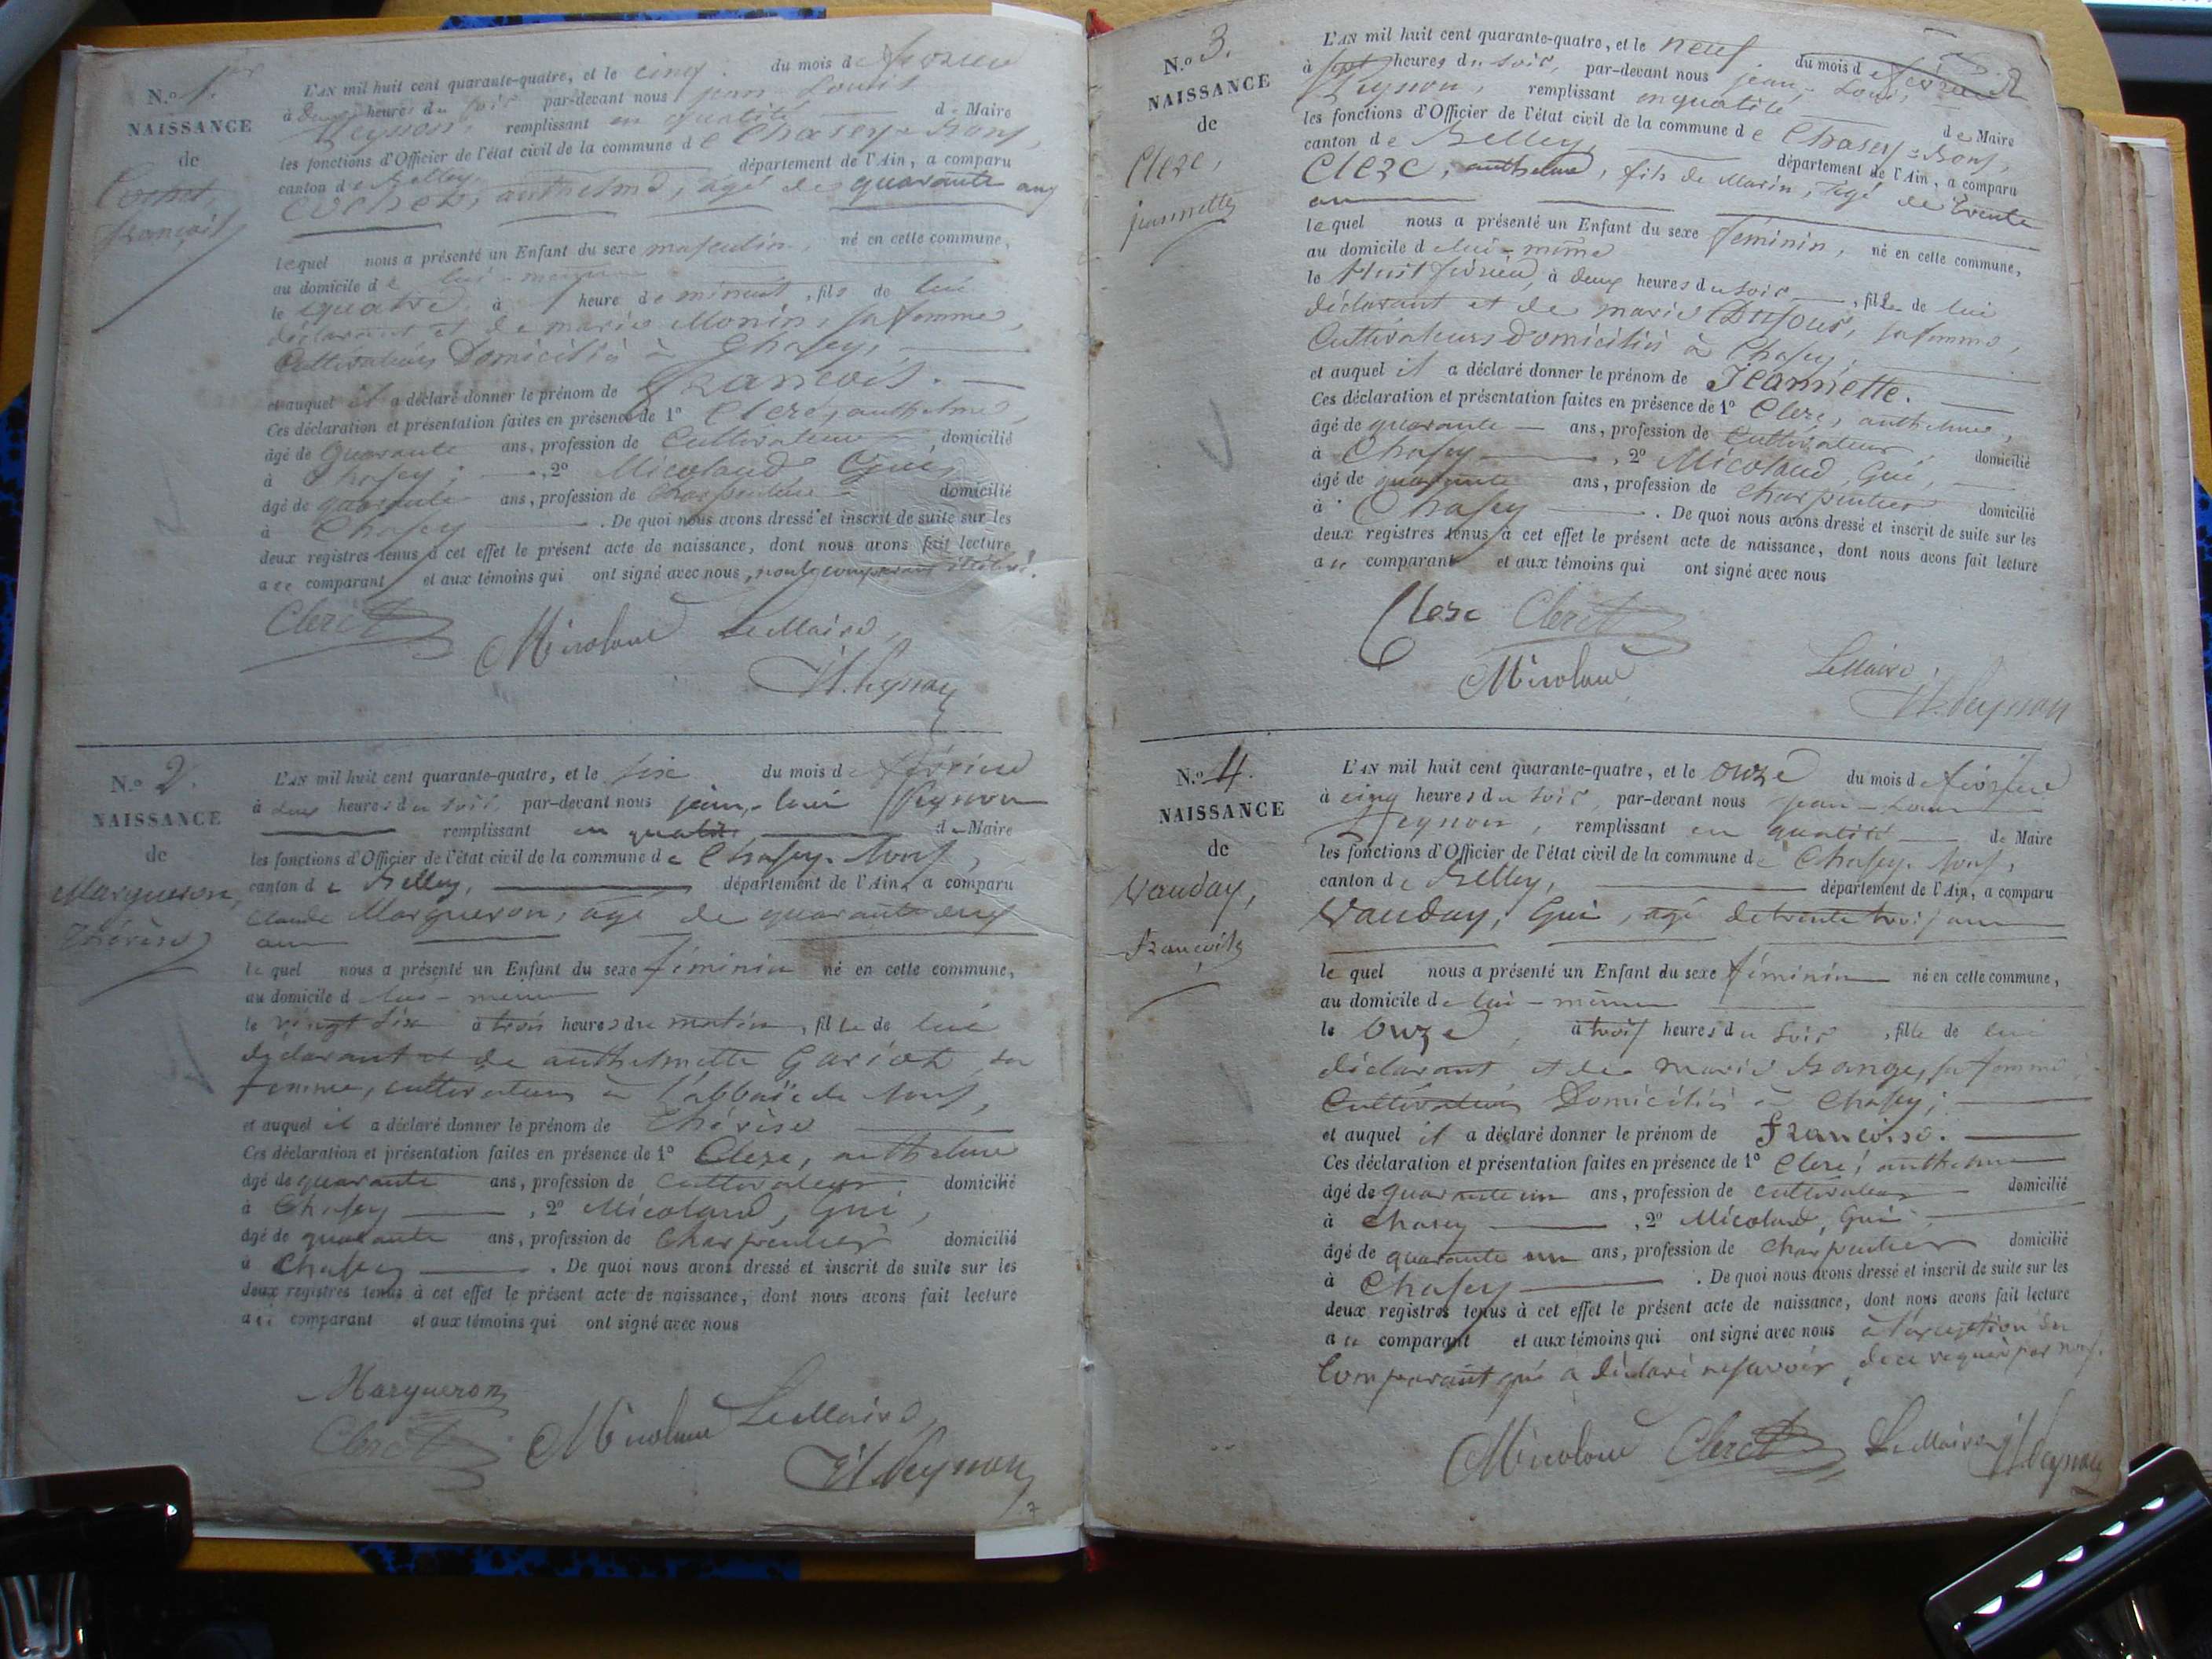 N.o 1.er
NAISSANCE
de
Cochet,
françois
L'AN mil huit cent quarante-quatre, et le cinq du mois de février
à deux heures du soir par-devant nous jean Louis
Peysson, remplissant en qualité de Maire
les fonctions d'Officier de l'état civil de la commune de Chasey-Bons,
canton de Belley, département de l'Ain, a comparu
Cochet, anthelme, âgé de quarante ans
lequel nous a présenté un Enfant du sexe masculin, né en cette commune,
au domicile de lui-même
le quatre, à heure de minuit, fils de lui
déclarant et de marie Monin, sa femme,
Cultivateurs Domiciliés à Chasey,
et auquel il a déclaré donner le prénom de françois.
Ces déclaration et présentation faites en présence de 1º Clerc, anthelme,
âgé de Quarante ans, profession de Cultivateur domicilié
à Chasey, 2º Micoland, Gui,
âgé de quarante ans, profession de Charpentier domicilié
à Chasey. De quoi nous avons dressé et inscrit de suite sur les
deux registres tenus à cet effet le présent acte de naissance, dont nous avons fait lecture
a ce comparant et aux témoins qui ont signé avec nous, non le comparant
Clerc
Micoland Le Maire,
Peysson
N.o 2.
NAISSANCE
de
Margueron,
Thérèse
L'AN mil huit cent quarante-quatre, et le six du mois de février
à deux heures du soir, par-devant nous jean-louis Peysson
remplissant en qualité de Maire
les fonctions d'Officier de l'état civil de la commune de Chasey-Bons,
canton de Belley, département de l'Ain, a comparu
Claude Margueron, âgé de quarante deux
ans
lequel nous a présenté un Enfant du sexe féminin né en cette commune,
au domicile de lui-même
le vingt six à trois heures du matin, fille de lui
déclarant et de anthelmette Gariot, sa
femme, cultivateurs à l'abbaïe de Bons,
et auquel il a déclaré donner le prénom de Thérèse
Ces déclaration et présentation faites en présence de 1º Clerc, anthelme
âgé de quarante ans, profession de cultivateur domicilié
à Chasey, 2º Micoland, Gui,
âgé de quarante ans, profession de Charpentier domicilié
à Chasey. De quoi nous avons dressé et inscrit de suite sur les
deux registres tenus à cet effet le présent acte de naissance, dont nous avons fait lecture
a ce comparant et aux témoins qui ont signé avec nous
Margueron
Clerc Micoland Le Maire,
Peysson
N.o 3.
NAISSANCE
de
Clerc,
jeannette
L'AN mil huit cent quarante-quatre, et le neuf du mois de février
à sept heures du soir, par-devant nous jean-Louis
Peysson, remplissant en qualité de Maire
les fonctions d'Officier de l'état civil de la commune de Chasey-Bons,
canton de Belley, département de l'Ain, a comparu
Clerc, anthelme, fils de Marin, âgé de trente
ans
lequel nous a présenté un Enfant du sexe féminin, né en cette commune,
au domicile de lui-même
le Huit février, à deux heures du soir, fille de lui
déclarant et de marie Dufour, sa femme,
Cultivateurs Domiciliés à Chasey,
et auquel il a déclaré donner le prénom de Jeannette.
Ces déclaration et présentation faites en présence de 1º Clerc, anthelme,
âgé de quarante ans, profession de Cultivateur, domicilié
à Chasey, 2º Micoland, Gui,
âgé de quarante ans, profession de Charpentier domicilié
à Chasey. De quoi nous avons dressé et inscrit de suite sur les
deux registres tenus à cet effet le présent acte de naissance, dont nous avons fait lecture
a ce comparant et aux témoins qui ont signé avec nous
Clerc Clerc
Micoland Le Maire,
Peysson
N.o 4.
NAISSANCE
de
Vauday,
françoise
L'AN mil huit cent quarante-quatre, et le onze du mois de février
à cinq heures du soir, par-devant nous jean-Louis
Peysson, remplissant en qualité de Maire
les fonctions d'Officier de l'état civil de la commune de Chasey-Bons,
canton de Belley, département de l'Ain, a comparu
Vauday, Gui, âgé de trente trois ans
lequel nous a présenté un Enfant du sexe féminin né en cette commune,
au domicile de lui-même
le onze, à trois heures du soir, fille de lui
déclarant et de marie Bange, sa femme
Cultivateurs Domiciliés à Chasey;
et auquel il a déclaré donner le prénom de françoise.
Ces déclaration et présentation faites en présence de 1º Clerc, anthelme
âgé de quarante un ans, profession de cultivateur domicilié
à Chasey, 2º Micoland, Gui
âgé de quarante un ans, profession de charpentier domicilié
à Chasey. De quoi nous avons dressé et inscrit de suite sur les
deux registres tenus à cet effet le présent acte de naissance, dont nous avons fait lecture
a ce comparant et aux témoins qui ont signé avec nous à l'exception du
Comparant qui a déclaré ne savoir, de ce requis par nous.
Micoland Clerc Le Maire Peysson